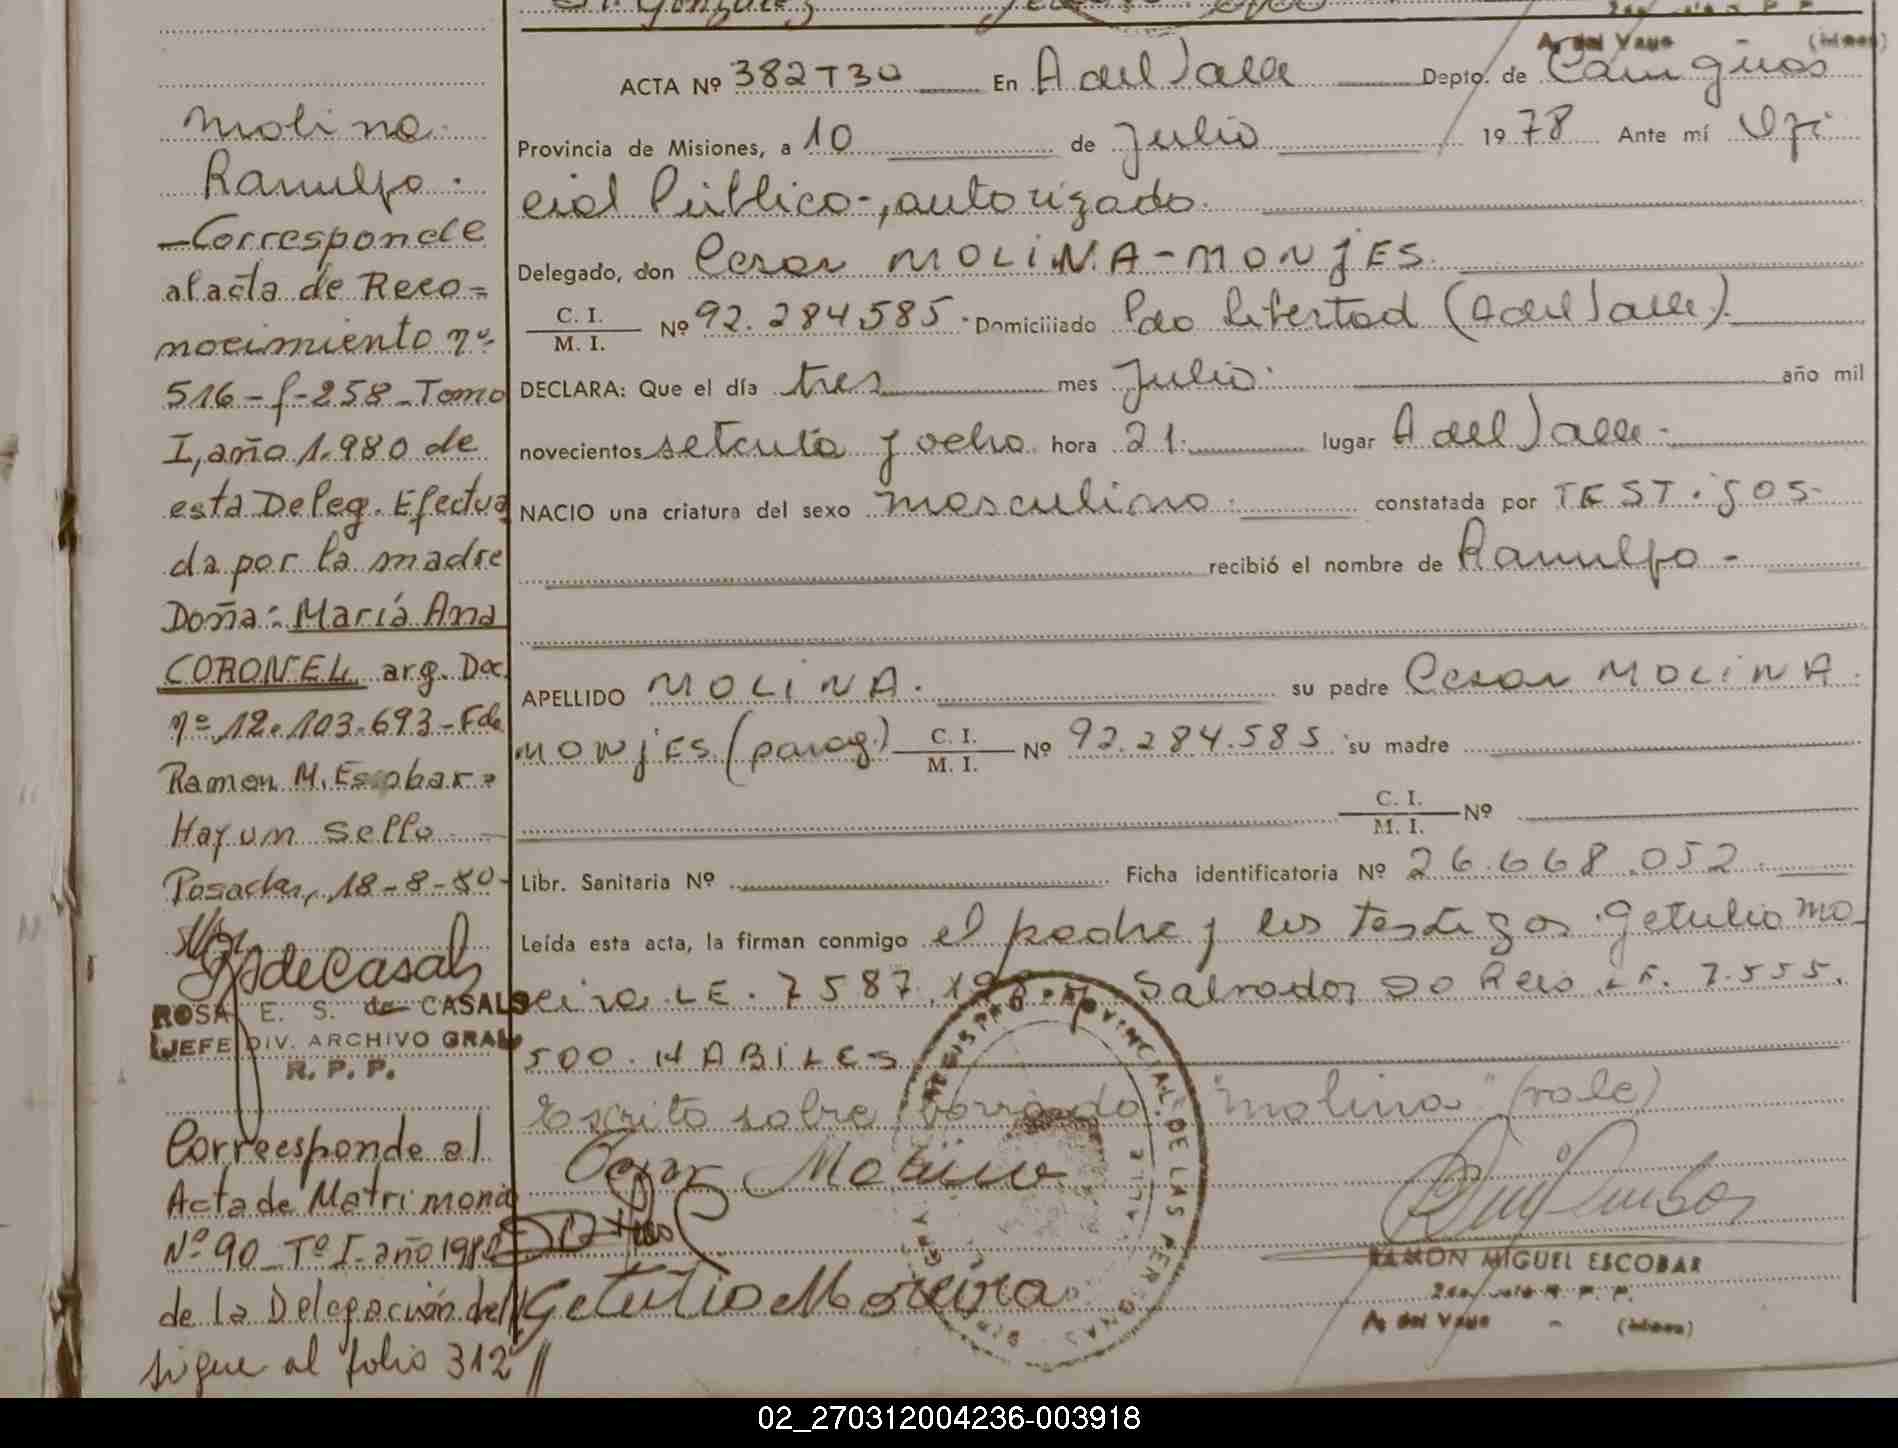 Molina
Ranulfo.
-Corresponde
al acta de Reco=
nocimiento nº
516-f-258-Tomo
I, año 1.980 de
esta Deleg. Efectua
da por la madre
Doña: María Ana
CORONEL arg. Doc.
nº 12.103.693-Fdo
Ramon M. Escobar=
Hay un sello
Posadas, 18-8-80-
ROSA E. S. de CASALS
JEFE DIV. ARCHIVO GRAL
R. P. P.
Corresponde al
Acta de Matrimonio
Nº 90 Tº I-año 198
de la Delegación del
sigue al folio 312 //
A. del Valle - (Mnes)
ACTA Nº 382 T30 En A del Valle Depto. de Cainguas
Provincia de Misiones, a 10 de Julio 1978 Ante mí Ofi
cial Público-, autorizado.
Delegado, don Cesar MOLINA-MONJES.
C. I. / M. I. Nº 92.284.585. Domiciliado Pdo Libertad (A del Valle).
DECLARA: Que el día tres mes Julio. año mil
novecientos setenta y ocho hora 21. lugar A del Valle-
NACIO una criatura del sexo masculino. constatada por TESTigos-
recibió el nombre de Ranulfo-
APELLIDO MOLINA. su padre Cesar MOLINA
MONJES (parag.) C. I. / M. I. Nº 92.284.585 su madre
C. I. / M. I. Nº
Libr. Sanitaria Nº Ficha identificatoria Nº 26.668.052
Leída esta acta, la firman conmigo el padre y los testigos Getulio Mo-
reira LE. 7587.19 Salvador Do Reis LE. 7.555.
500. HABILES
Escrito sobre borrado: "Molina" (vale)
Cesar Molina
Getulio Moreira
REGISTRO PROVINCIAL DE LAS PERSONAS
RAMON MIGUEL ESCOBAR
A. del Valle - (Mnes)
02_270312004236-003918